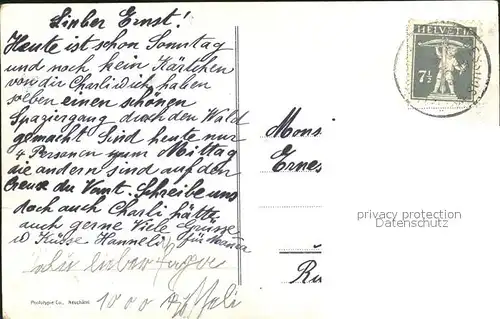 Lieber Ernst!
Heute ist schon Sonntag
und noch kein Kärtchen
von dir Charli u ich haben
soeben einen schönen
Spaziergang durch den Wald
gemacht Sind heute nur
4 Personen zum Mittag
die andern sind auf den
Creux du Vant. Schreibe uns
doch auch Charli hätte
auch gerne Viele Grüsse
u Küsse Hanneli für
lieber
1000
Phototypie Co., Neuchâtel
HELVETIA
7½
Monsi
Ernes
privacy protection
Datenschutz